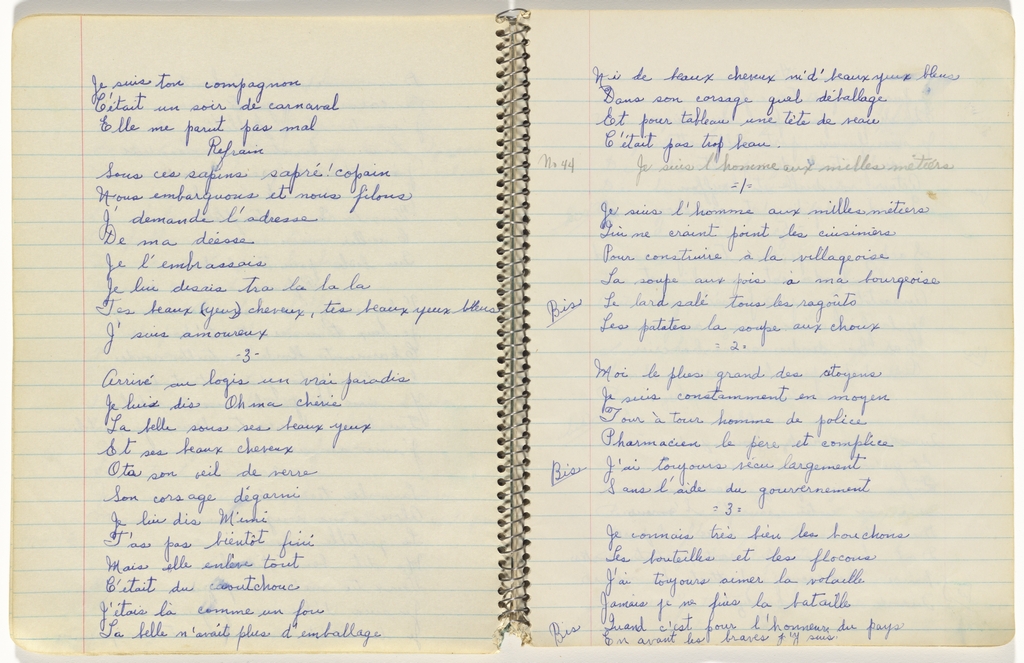 Je suis ton compagnon
C'était un soir de carnaval
Elle me parut pas mal
Refrain
Sous ces sapins sapré! copain
Nous embarquons et nous filons
J' demande l'adresse
De ma déesse
Je l'embrassais
Je lui disais tra la la la
Tes beaux (yeux) cheveux, tes beaux yeux bleus
J' suis amoureux
-3-
Arrivé au logis un vrai paradis
Je lui dis Oh ma chérie
La belle sous ses beaux yeux
Et ses beaux cheveux
Ota son oeil de verre
Son corsage dégarni
Je lui dis Mimi
T'as pas bientôt fini
Mais elle enlève tout
C'était du caoutchouc
J'étais là comme un fou
La belle n'avait plus d'emballage
Ni de beaux cheveux ni d'beaux yeux bleus
Dans son corsage quel déballage
Et pour tableau une tête de veau
C'était pas trop beau.
No 44 Je suis l'homme aux milles métiers
=1=
Je suis l'homme aux milles métiers
Qui ne craint point les cuisiniers
Pour construire à la villageoise
La soupe aux pois à ma bourgeoise
Bis Le lard salé tous les ragoûts
Les patates la soupe aux choux
=2=
Moi le plus grand des citoyens
Je suis constamment en moyen
Tour à tour homme de police
Pharmacien le père et complice
Bis J'ai toujours vécu largement
Sans l'aide du gouvernement
=3=
Je connais très bien les bouchons
Les bouteilles et les flocons
J'ai toujours aimer la volaille
Jamais je ne fuis la bataille
Bis Quand c'est pour l'honneur du pays
En avant les braves j'y suis